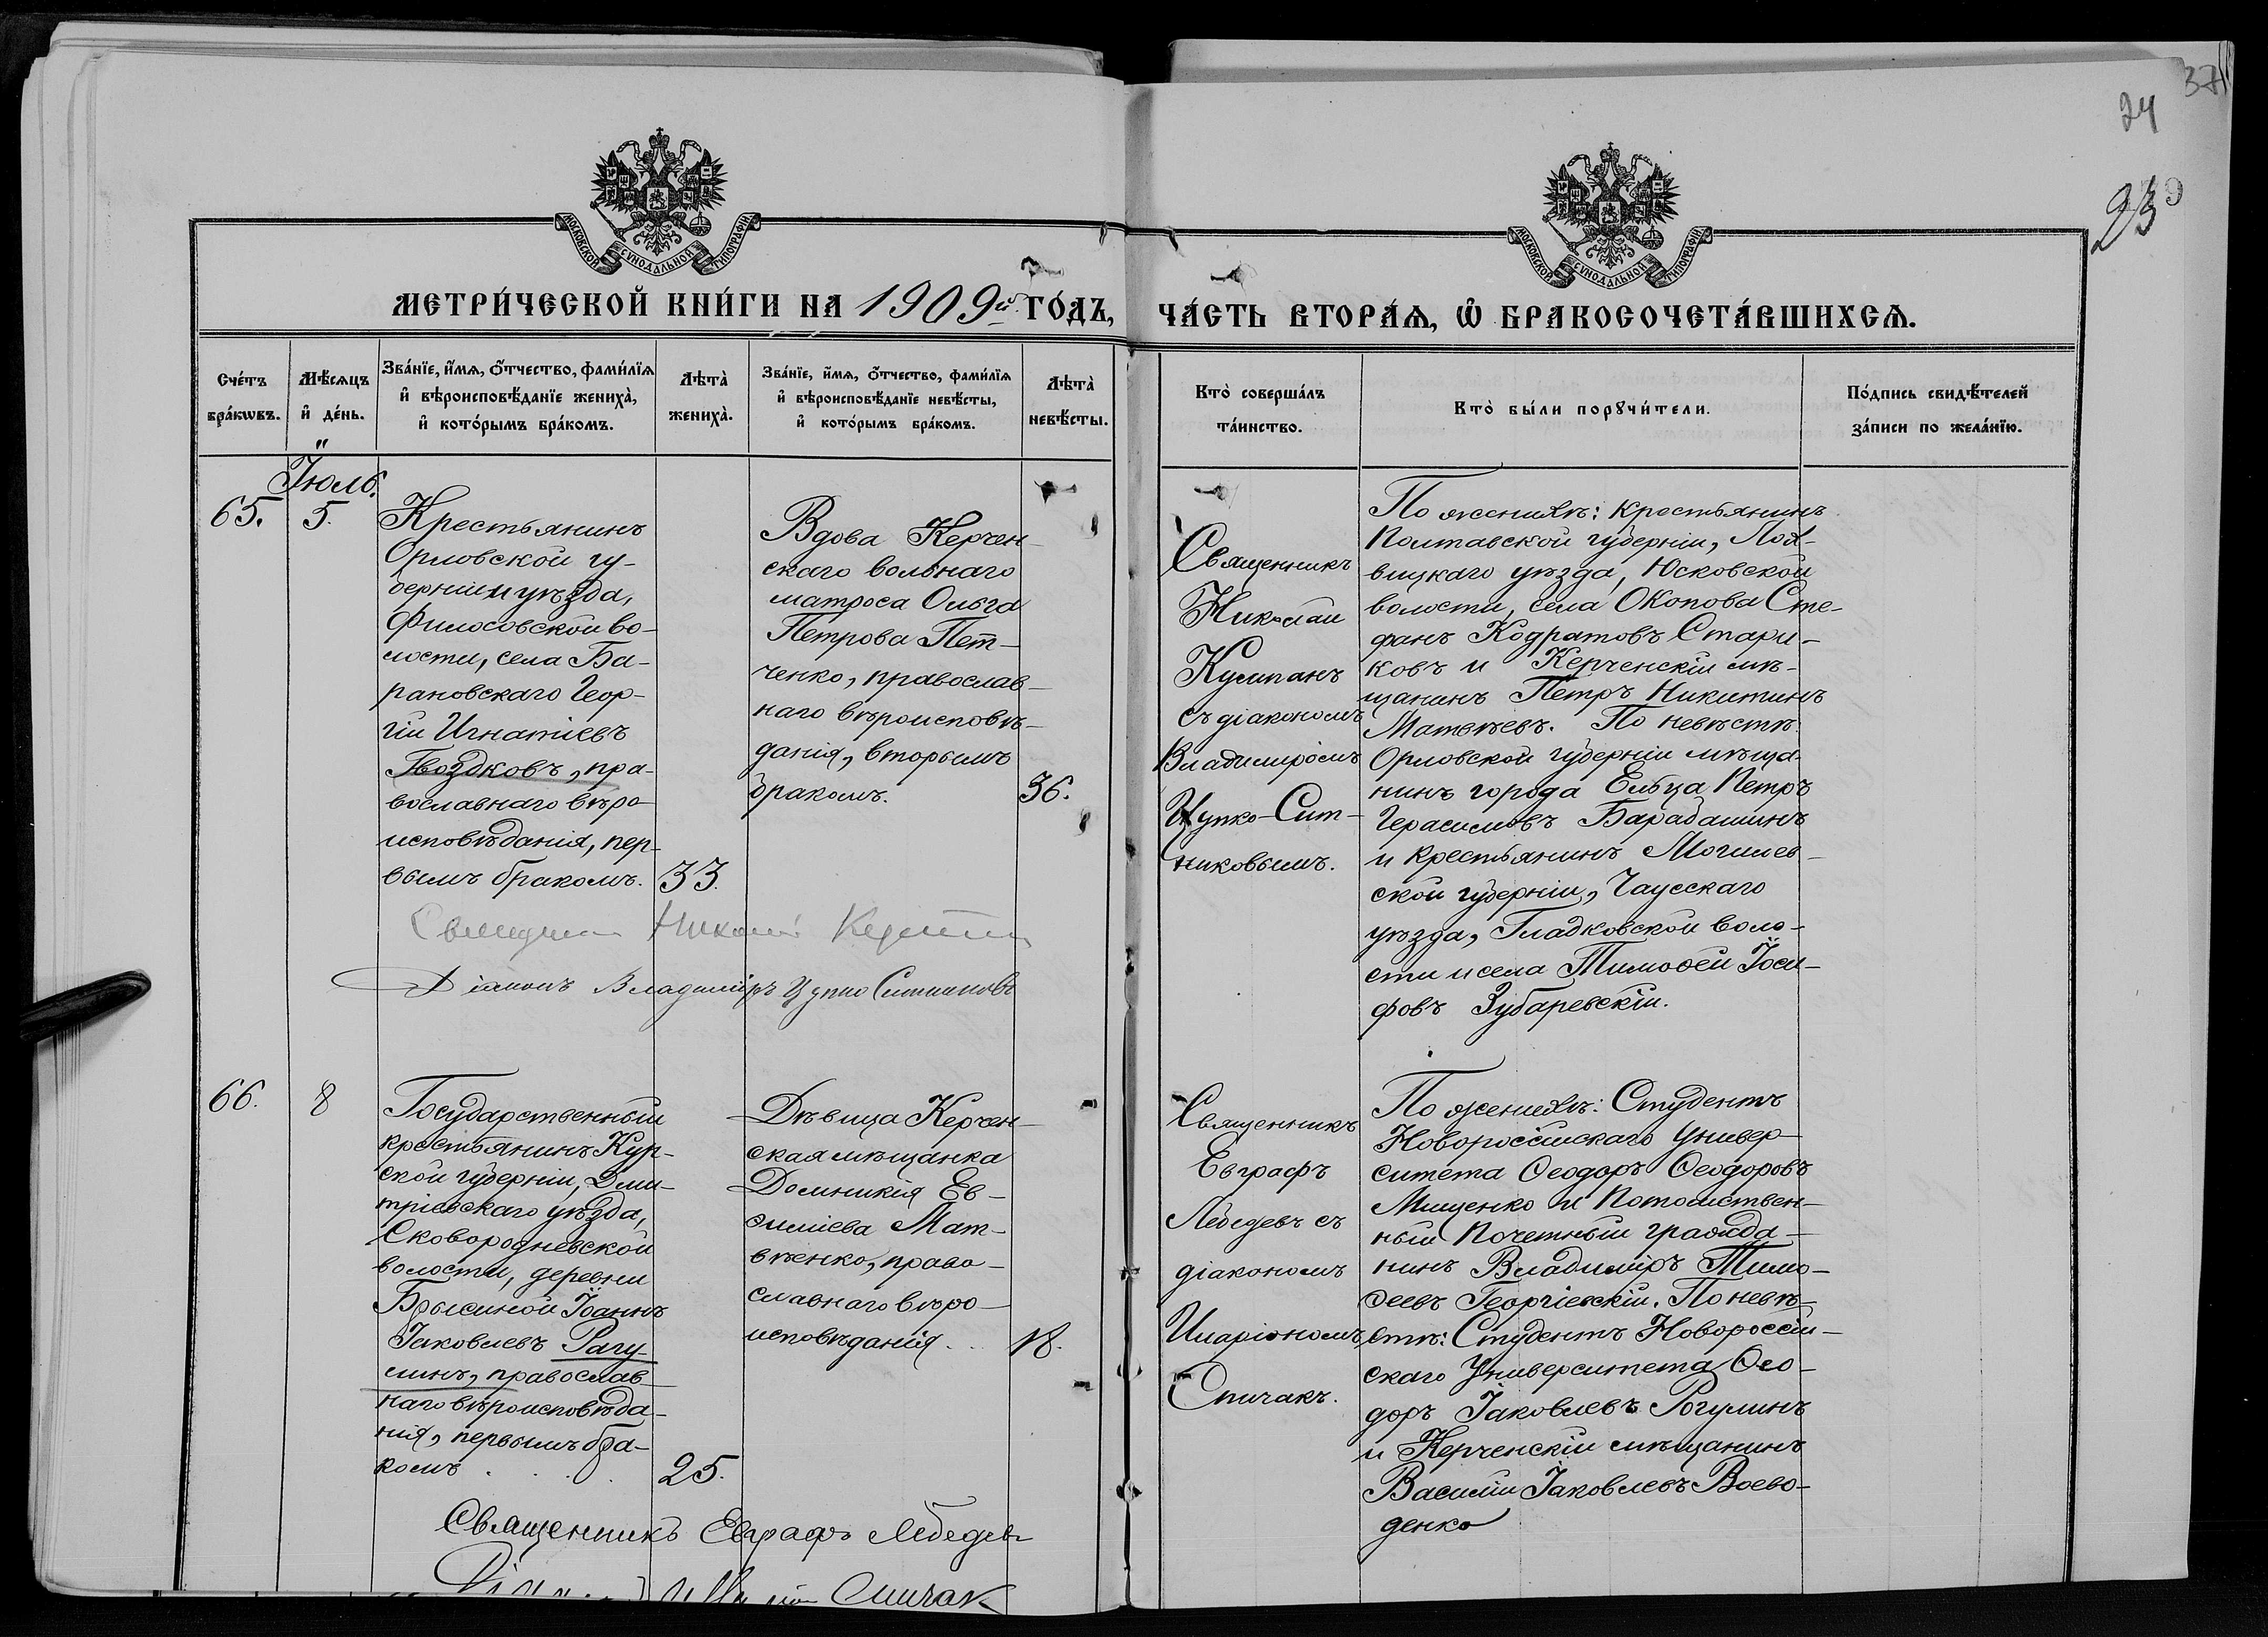 37
24
23
9
МОСКОВСКОЙ СѴНОДАЛЬНОЙ ТИПОГРАФІИ
МОСКОВСКОЙ СѴНОДАЛЬНОЙ ТИПОГРАФІИ
МЕТРИ́ЧЕСКОЙ КНИ́ГИ НА 1909й ГО́ДЪ,
ЧА́СТЬ ВТОРА́Ѧ, Ѽ БРАКОСОЧЕТА́ВШИХСѦ.
Сче́тъ
бра́кѡвъ.
Мѣ́сяцъ
и҆ де́нь.
Зва́нїе, и҆́мѧ, ѻ҆́тчество, фами́лїѧ
и҆ вѣроисповѣ́данїе жениха̀,
и҆ кото́рымъ бра́комъ.
Лѣта̀
жениха̀.
Зва́нїе, и҆́мѧ, ѻ҆́тчество, фами́лїѧ
и҆ вѣроисповѣ́данїе невѣ́сты,
и҆ кото́рымъ бра́комъ.
Лѣта̀
невѣ́сты.
Кто̀ соверша́лъ
та́инство.
Кто̀ бы́ли порꙋчи́тели.
По́дпись свидѣ́телей
за́писи по жела́нїю.
Іюль.
65.
5.
Крестьянинъ
Орловской гу-
берніи и уѣзда,
Философской во-
лости, села Ба-
рановскаго Геор-
гій Игнатіевъ
Гвоздковъ, пра-
вославнаго вѣро
исповѣданія, пер-
вымъ бракомъ.
33.
Вдова Керчен-
скаго вольнаго
матроса Ольга
Петрова Пет-
ченко, православ-
наго вѣроисповѣ-
данія, вторымъ
бракомъ.
36.
Священникъ
Николай
Кумпанъ
съ діакономъ
Владиміромъ
Цупко-Сит-
никовымъ.
По женихѣ: крестьянинъ
Полтавской губерніи, Лох-
вицкаго уѣзда, Юсковской
волости, села Окопова Сте-
фанъ Кодратовъ Стари-
ковъ и Керченскій мѣ-
щанинъ Петръ Никитинъ
Матвѣевъ. По невѣстѣ
Орловской губерніи мѣща-
нинъ города Ельца Петръ
Герасимовъ Барабашинъ
и крестьянинъ Могилев-
ской губерніи, Чаусскаго
уѣзда, Гладковской воло-
сти и села Тимоѳей Іоси-
фовъ Зубаревскій.
Священникъ Николай Кумпанъ
Діаконъ Владиміръ Цупко Ситниковъ
66.
8
Государственный
крестьянинъ Кур-
ской губерніи, Дми-
тріевскаго уѣзда,
Сковородневской
волости, деревни
Брысиной Іоаннъ
Іаковлевъ Рагу-
линъ, православ
наго вѣроисповѣда-
нія, первымъ бра-
комъ . . . .
25.
Дѣвица Керчен-
ская мѣщанка
Домникія Ев-
симіева Мат-
вѣенко, право-
славнаго вѣро-
исповѣданія . .
18.
Священникъ
Евграфъ
Лебедевъ съ
діакономъ
Иларіономъ
Спичакъ.
По женихѣ: Студентъ
Новороссійскаго универ-
ситета Ѳеодоръ Ѳеодоровъ
Мищенко и Потомствен-
ный Почетный гражда-
нинъ Владиміръ Тимо-
ѳеевъ Георгіевскій. По невѣ-
стѣ: Студентъ Новороссій-
скаго Университета Ѳео-
доръ Іаковлевъ Рогулинъ
и Керченскій мѣщанинъ
Василій Іаковлевъ Воево-
денко
Священникъ Евграфъ Лебедевъ
Спичак